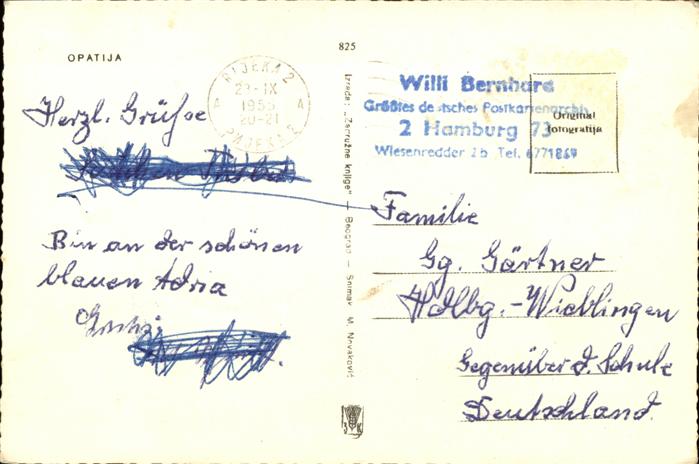 OPATIJA
825
RIJEKA 2
23-IX
1955
20-21
A A
РИЈЕКА 2
Herzl. Grüße
Bin an der schönen
blauen Adria
Izrada: „Zadružne knjige" — Beograd — Snimak M. Novaković
Willi Bernhard
Größtes deutsches Postkartenarchiv
2 Hamburg 73
Wiesenredder 2b Tel. 6771869
Original
fotografija
Familie
Gg. Gärtner
Hdlbg.-Wieblingen
Gegenüber d. Schule
Deutschland.